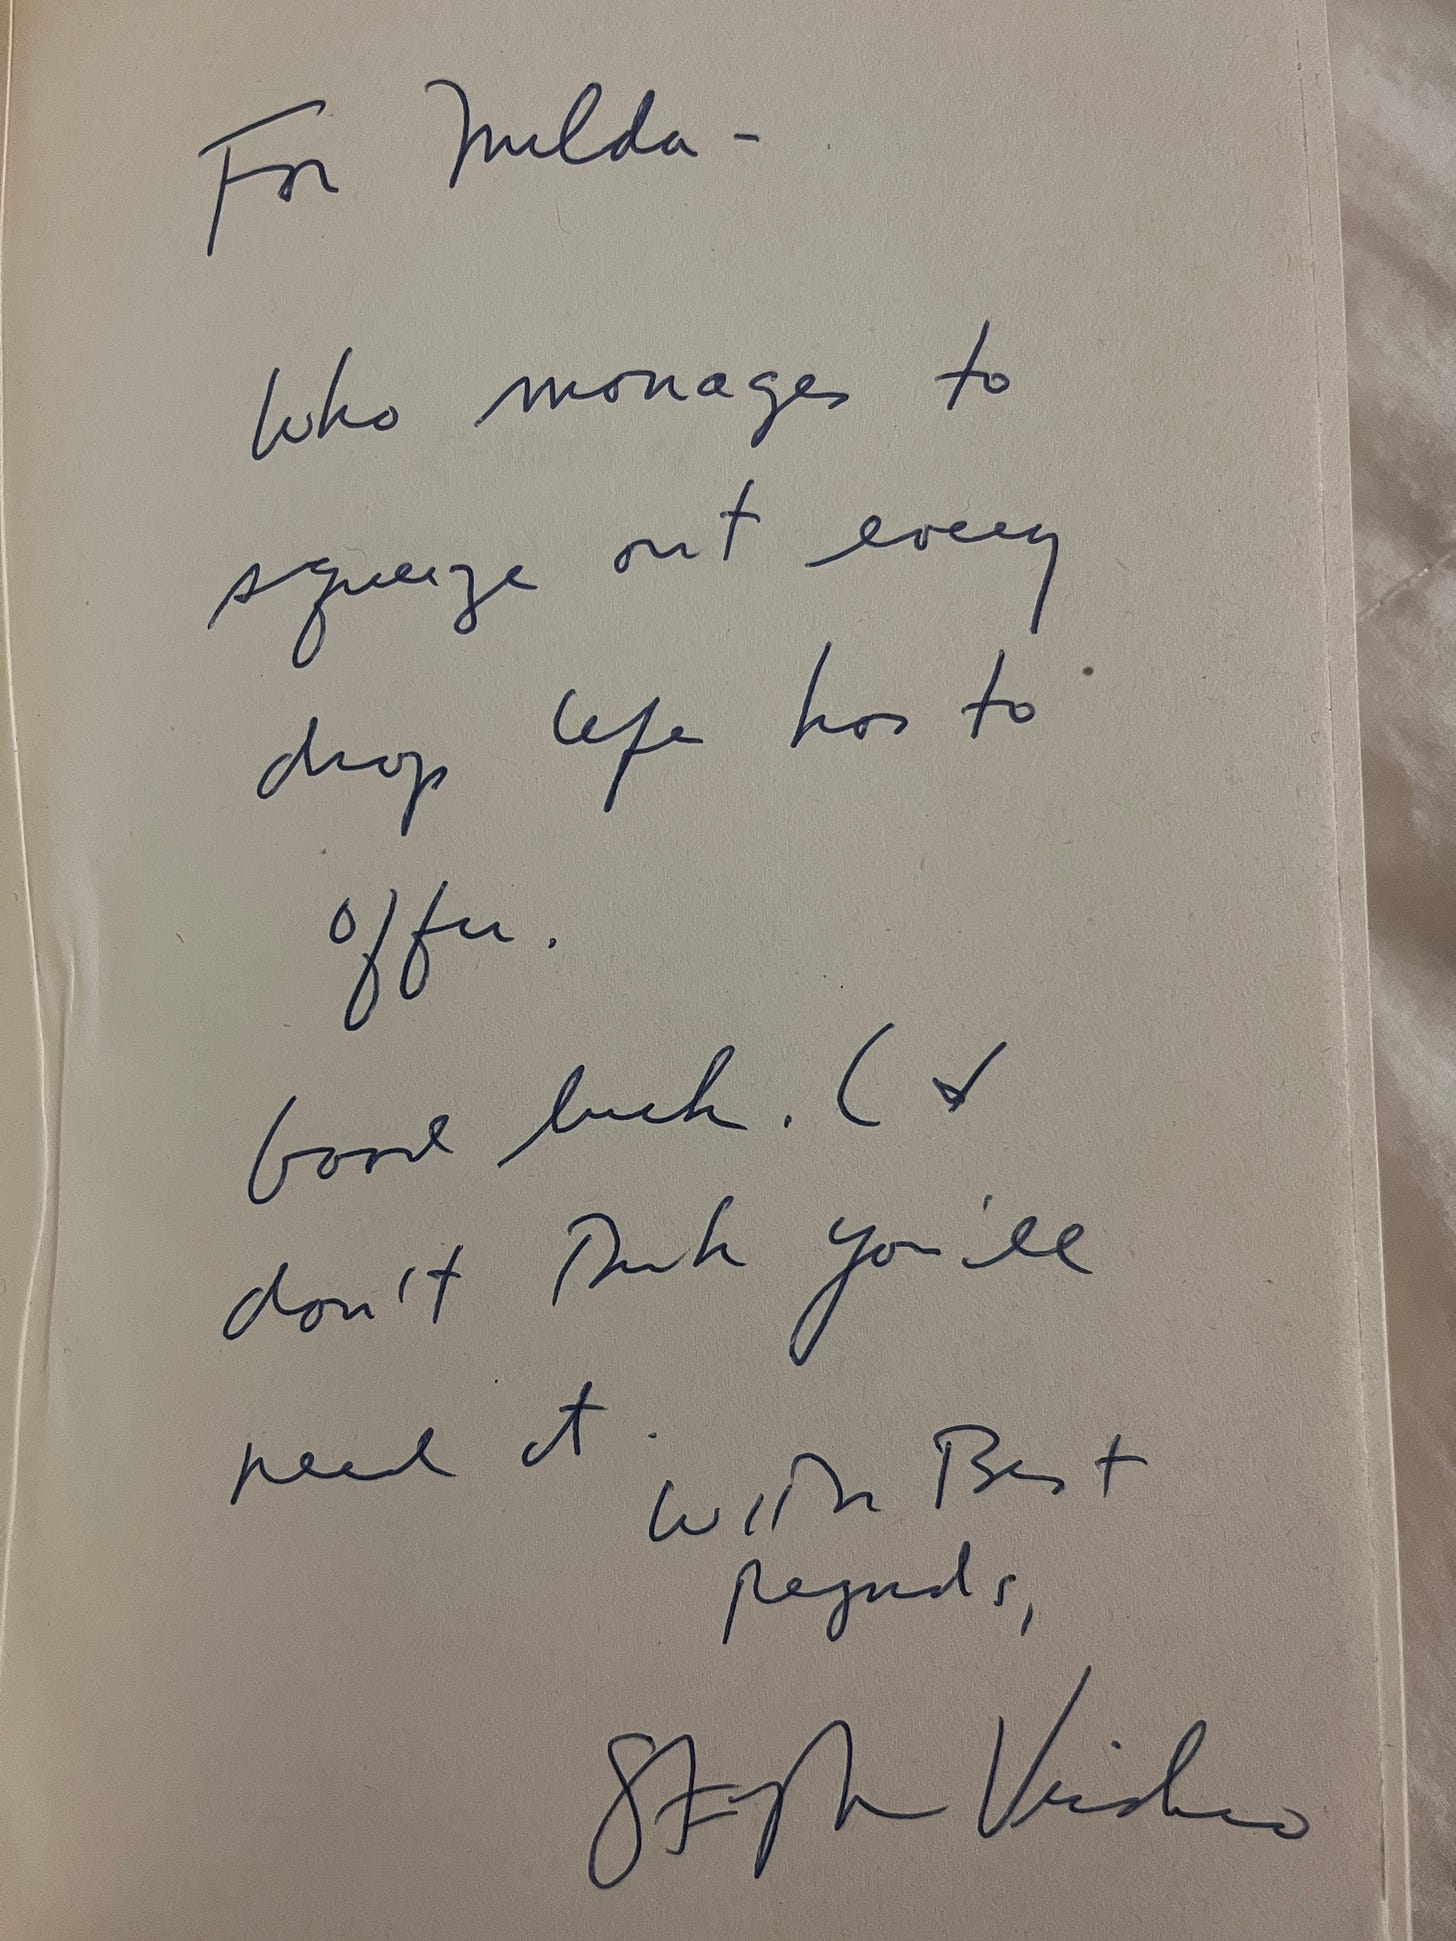 For Milda -
Who manages to
squeeze out every
drop life has to
offer.
Good luck. (I
don't think you'll
need it.
With Best
Regards,
Stephen Vizinczey